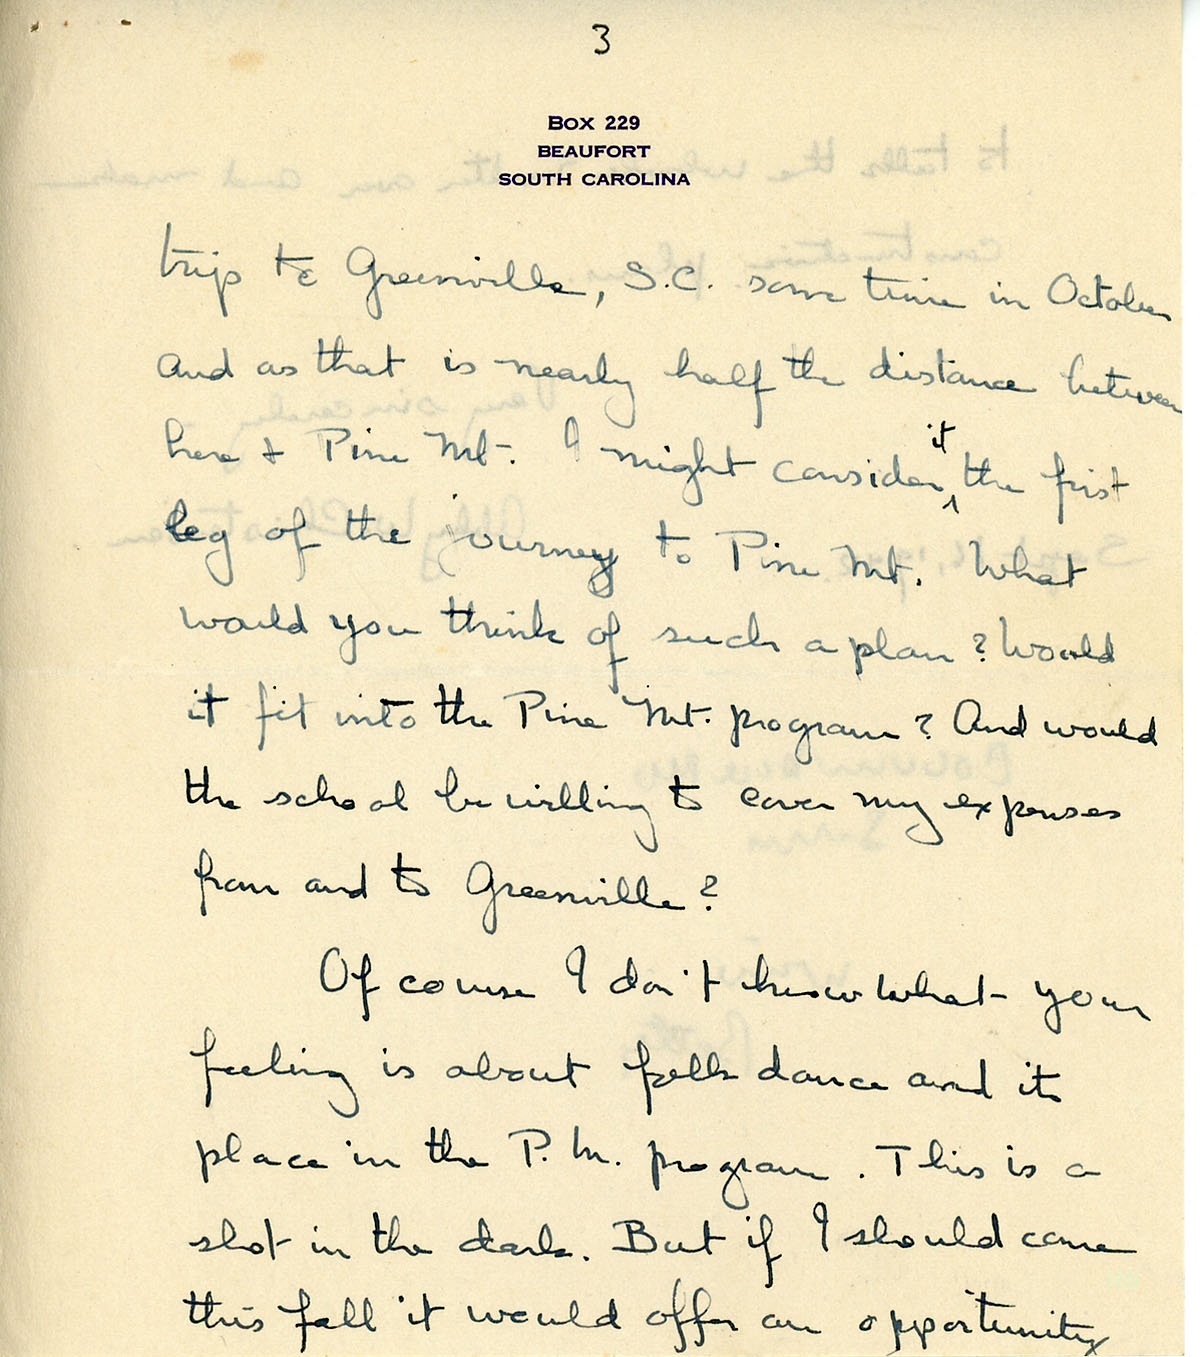 3
BOX 229
BEAUFORT
SOUTH CAROLINA
trip to Greenville, S.C. some time in October
and as that is nearly half the distance between
here + Pine Mt. I might consider it the first
leg of the journey to Pine Mt. What
would you think of such a plan? Would
it fit into the Pine Mt. program? And would
the school be willing to cover my expenses
from and to Greenville?
Of course I don't know what your
feeling is about folk dance and its
place in the P. M. program. This is a
shot in the dark. But if I should come
this fall it would offer an opportunity